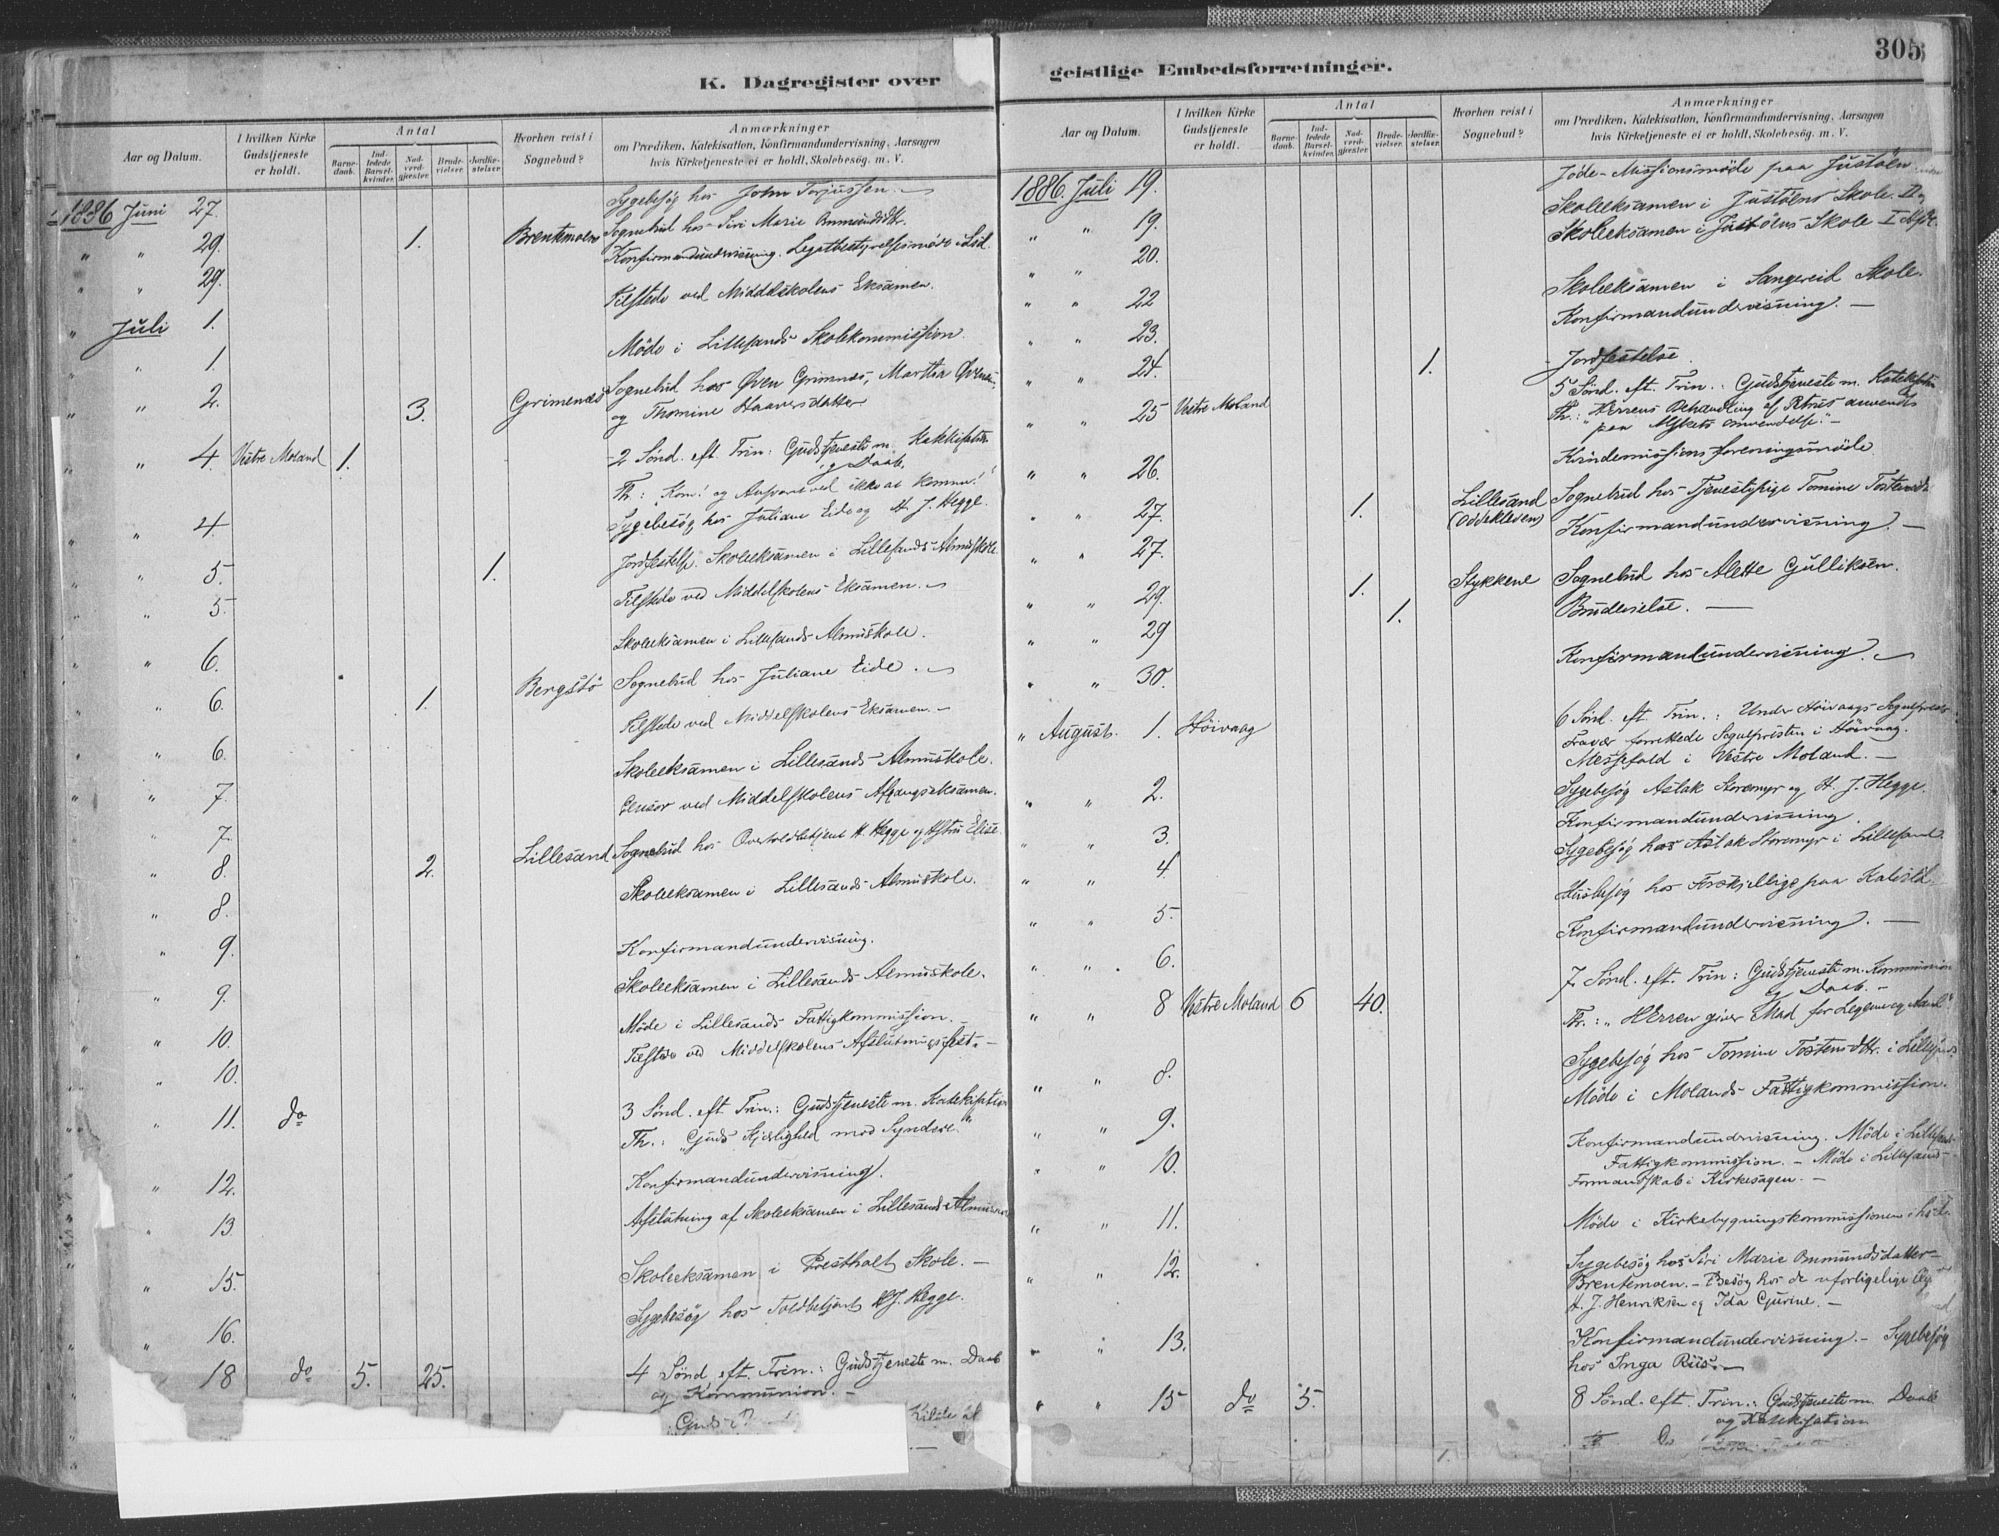 305
K. Dagregister over
Aar og Datum.
I hvilken Kirke Gudstjeneste er holdt.
Antal
Barnedaab.
Indledede Barselkvinder.
Nadverdgjæster.
Brudevielser.
Jordfæstelser.
Hvorhen reist i Sognebud?
Anmærkninger
om Prædiken, Katekisation, Konfirmandundervisning, Aarsagen
hvis Kirketjeneste ei er holdt, Skolebesøg. m. V.
1886 Juni 27. Sygebesøg hos John Torjussen.
" " 29. 1. Brentemoen Sognebud hos Siri Marie Omundsdtr.
" " 29. Konfirmandundervisning. Legatbestyrelsesmøde i Lsd.
" Juli 1. Tilstede ved Middelskolens Eksamen.
" " 1. Møde i Lillesands Skolekommission.
" " 2. 3. Grimenæs Sognebud hos Øven Grimnes, Martha Øvens.
og Thomine Haaversdatter
" " 4. Vestre Moland 1. 2 Sönd. eft. Trin: Gudstjeneste m. Katekisation
og Daab.
Th.: "Kom!" og Ansvaret ved ikke at komme!
" " 4. Sygebesøg hos Juliane Eide og H. J. Hegge.
" " 5. 1. Jordfestelse. Skoleeksamen i Lillesands Almuskole.
" " 5. Tilstede ved Middelskolens Eksamen.
" " 6. Skoleeksamen i Lillesands Almuskole.
" " 6. 1. Bergstö Sognebud hos Juliane Eide.
" " 6. Tilstede ved Middelskolens Eksamen.
" " 7. Skoleeksamen i Lillesands Almuskole.
" " 7. Censor ved Middelskolens Afgangseksamen.
" " 8. 2. Lillesand Sognebud hos Overtoldbetjent H. Hegge og Hstru Elise.
" " 8. Skoleeksamen i Lillesands Almuskole.
" " 9. Konfirmandundervisning.
" " 9. Skoleeksamen i Lillesands Almuskole.
" " 10. Møde i Lillesands Fattigkommission.
" " 10. Tilstede ved Middelskolens Afslutningsfest.
" 11. do 3 Sönd. eft. Trin.: Gudstjeneste m. Katekisation
Th.: "Guds Kjærlighed mod Syndere."
" 12. Konfirmandundervisning.
" 13 Afslutning af Skoleeksamen i Lillesands Almuskole
" 15. Skoleeksamen i Presthalt Skole.
" 16. Sygebesøg hos Toldbetjent H. J. Hegge.
" 18 do 5. 25. 4 Sønd. eft. Trin.: Gudstjeneste m. Daab
og Kommunion.
Guds
Kilde
geistlige Embedsforretninger.
Aar og Datum.
I hvilken Kirke Gudstjeneste er holdt.
Antal
Barnedaab.
Indledede Barselkvinder.
Nadverdgjæster.
Brudevielser.
Jordfæstelser.
Hvorhen reist i Sognebud?
Anmærkninger
om Prædiken, Katekisation, Konfirmandundervisning, Aarsagen
hvis Kirketjeneste ei er holdt, Skolebesøg. m. V.
1886 Juli 19. Jöde-Missionsmøde paa Justöen
" " 19. Skoleeksamen i Justöens Skole. II
" " 20. Skoleeksamen i Justöens Skole I
" " 22 Skoleeksamen i Sangereid Skole.
" " 23. Konfirmandundervisning.
" " 24. 1. Jordfestelse.
" " 25 Vestre Moland 5 Sönd. eft. Trin.: Gudstjeneste m. Katekisation
Th.: "HErrens Behandling af Petrus anvendt
paa Alskets omvendelse."
" " 26. Kvindemissionsforeningsmøde
" " 27. 1. Lillesand (Oddekleven) Sognebud hos Tjenestepige Tomine Tostensdtr
" " 27. Konfirmandundervisning.
" " 29. 1. Stykkene Sognebud hos Alette Gulliksen.
" " 29 1. Brudevielse.
" " 30. Konfirmandundervisning.
" August. 1. Höivaag 6 Sönd. eft. Trin.: Under Höivaags Sogneprests
Fravær forrettede Sognepresten i Höivaag.
Messefald i Vestre Moland.
" " 2. Sygebesøg Aslak Storemyr og H. J. Hegge.
" " 3. Konfirmandundervisning
" " 4 Sygebesøg hos Aslak Storemyr i Lillesand.
" " 5. Husbesøg hos Forskjellige paa Kaldvld.
" " 6. Konfirmandundervisning.
" " 8 Vestre Moland 6 40. 7 Sönd. eft. Trin: Gudstjeneste m. Kommunion
og Daab.
Th.: "HErren giver Mad for Legeme og Aand."
" " 8. Sygebesøg hos Tomine Tostensdtr. i Lillesand
" " 9. Møde i Molands Fattigkommission.
" " 10. Konfirmandundervisning. Møde i Lillesands
Fattigkommission. – Møde i Lillesands
Formandskab i Kirkesagen.
" " 11. Møde i Kirkebygningskommissionen i Lsd.
" " 12. Sygebesøg hos Siri Marie Omundsdatter
Brentemoen. – Besøg hos de uforligelige Ægt.
H. J. Henriksen og Ida Gurine.
" " 13. Konfirmandundervisning. – Sygebesøg
hos Inga Riis.
" " 15 do 5. 8 Sönd. eft. Trin.: Gudstjeneste m. Daab
og Katekisation